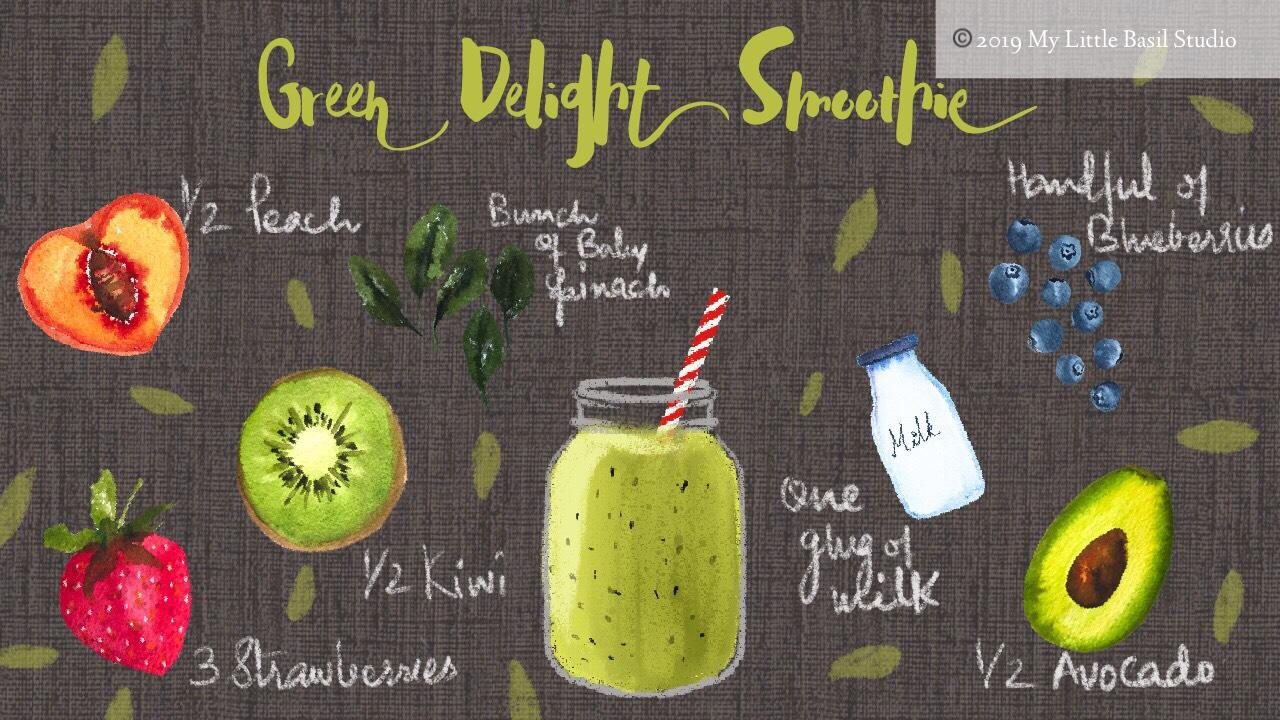 © 2019 My Little Basil Studio
Green Delight Smoothie
1/2 Peach
Bunch
of Baby
Spinach
Handful of
Blueberries
Milk
One
glug of
milk
1/2 Kiwi
3 Strawberries
1/2 Avocado